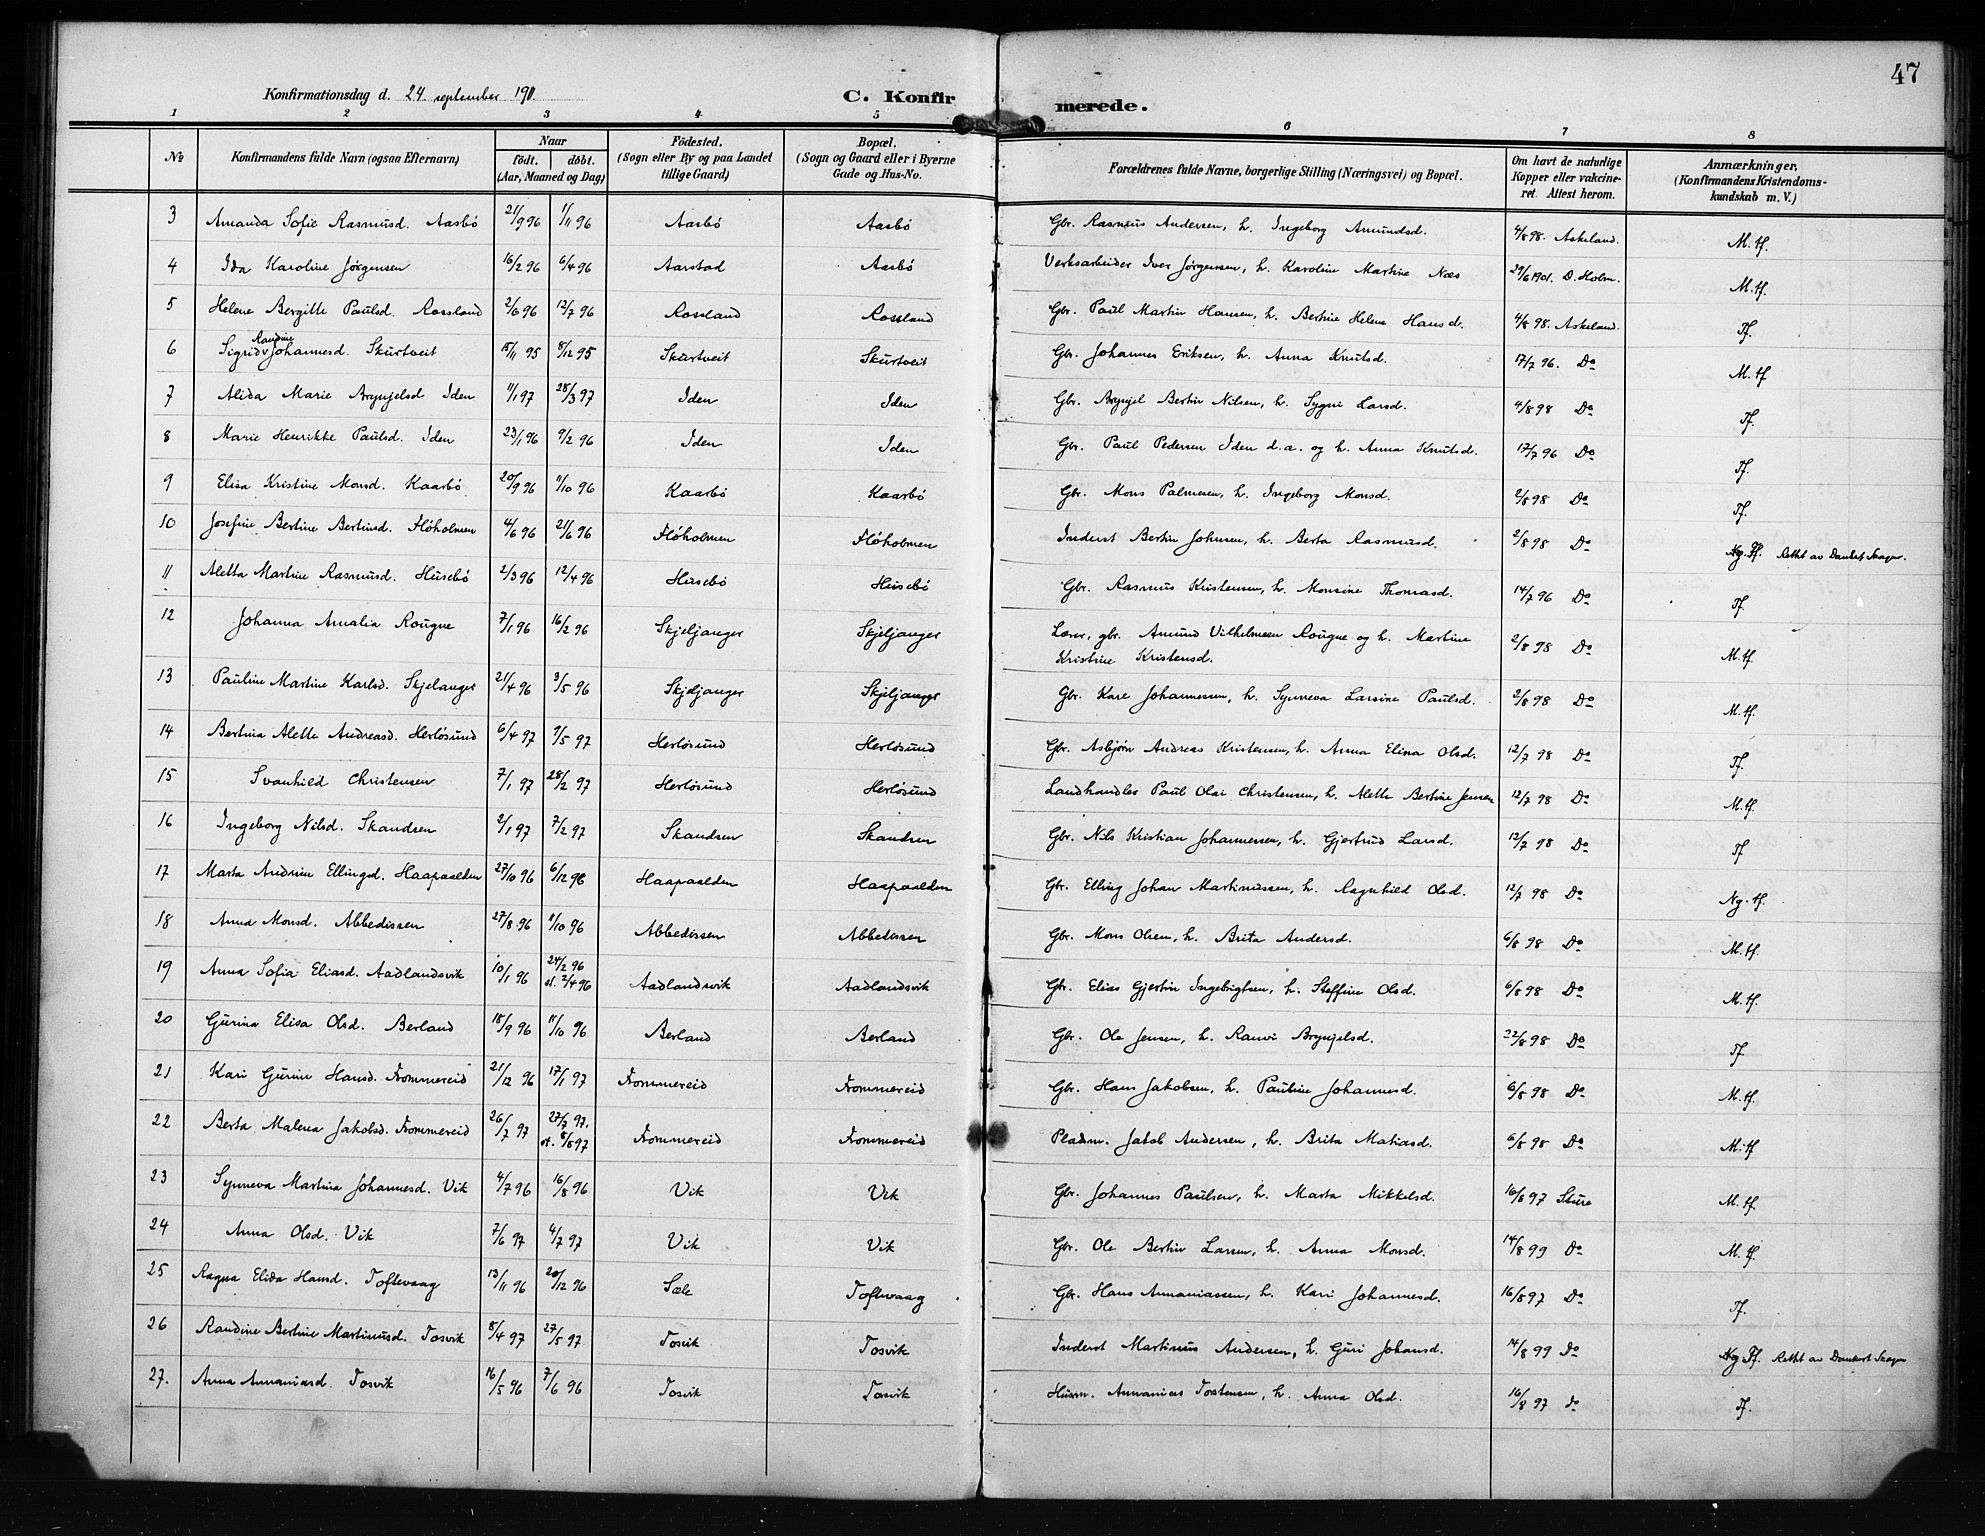 47
Konfirmationsdag d. 24 september 1911.
C. Konfirmerede.
1 2 3 4 5 6 7 8
No Konfirmandens fulde Navn (ogsaa Efternavn) Naar födt. döbt. (Aar, Maaned og Dag) Födested. (Sogn eller By og paa Landet tillige Gaard) Bopæl. (Sogn og Gaard eller i Byerne Gade og Hus-No. Forældrenes fulde Navne, borgerlige Stilling (Næringsvei) og Bopæl. Om havt de naturlige Kopper eller vakcineret. Attest herom. Anmærkninger, (Konfirmandens Kristendomskundskab m. V.)
3 Amanda Sofie Rasmusd. Aasbö 21/9 96 1/11 96 Aasbö Aasbö Gbr. Rasmus Andersen, h. Ingeborg Amundsd. 4/8 98. Askeland. M. tf.
4 Ida Karoline Jørgensen 16/2 96 6/4 96 Aarstad Aasbö Verksarbeider Iver Jørgensen, h. Karoline Martine Næs 29/6 1901. D. Holm. M. tf.
5 Helene Bergitte Paulsd. Rossland 2/6 96 12/7 96 Rossland Rossland Gbr. Paul Martin Hansen, h. Bertine Helene Hansd. 4/8 98. Askeland. Tf.
6 Sigrid Randine Johannesd. Skurtveit 15/11 95 8/12 95 Skurtveit Skurtveit Gbr. Johannes Eriksen, h. Anna Knutsd. 17/7 96. Do M. tf
7 Alida Marie Brynjelsd Iden 1/1 97 28/3 97 Iden Iden Gbr. Brynjel Bertin Nilsen, h. Sygni Larsd. 4/8 98 Do Tf.
8 Marie Henrikke Paulsd. Iden 23/1 96 9/2 96 Iden Iden Gbr. Paul Pedersen Iden d.æ. og h. Anna Knutsd. 17/7 96 Do Tf.
9 Elisa Kristine Monsd. Kaarbö 20/9 96 11/10 96 Kaarbö Kaarbö Gbr. Mons Palmesen, h. Ingeborg Monsd. 2/8 98 Do Tf.
10 Josefine Bertine Bertinsd. Flöholmen 4/6 96 21/6 96 Flöholmen Flöholmen Inderst Bertin Johnsen, h. Berta Rasmusd. 2/8 98 Do Tf. Rettet av Dankert Skagen.
11 Aletta Martine Rasmusd. Husebö 2/3 96 12/4 96 Husebö Husebö Gbr. Rasmus Kristensen, h. Monsine Thomasd. 14/7 96 Do Tf.
12 Johanna Amalia Rougne 7/1 96 16/2 96 Skjeljanger Skjeljanger Lærer, gbr. Amund Vilhelmsen Rougne og h. Martine 2/8 98 Do M. tf.
Kristine Kristensd.
13 Pauline Martine Karlsd. Skjelanger 21/4 96 3/5 96 Skjeljanger Skjeljanger Gbr. Kare Johannessen, h. Synneva Larsine Paulsd. 2/8 98 Do M. tf.
14 Bertina Alette Andreasd. Herlösund 6/4 97 9/5 97 Herlösund Herlösund Gbr. Asbjørn Andreas Kristensen, h. Anna Elina Olsd. 12/7 98 Do Tf.
15 Svanhild Christensen 7/1 97 28/2 97 Herlösund Herlösund Landhandler Paul Olai Christensen, h. Alette Bertine Jensen 12/7 98 Do M. tf.
16 Ingeborg Nilsd. Skandsen 2/1 97 7/2 97 Skandsen Skandsen Gbr. Nils Kristian Johannessen, h. Gjertrud Larsd. 12/7 98 Do Tf
17 Marta Andrine Ellingsd. Haapaalden 27/10 96 6/12 96 Haapaalden Haapaalden Gbr. Elling Johan Martinussen, h. Ragnhild Olsd. 12/7 98 Do Ng. tf.
18 Anna Monsd. Abbedissen 27/8 96 11/10 96 Abbedissen Abbedissen Gbr. Mons Olsen, h. Brita Andersd. 6/8 98 Do M. tf.
19 Anna Sofia Eliasd. Aadlandsvik 10/1 96 24/2 96 st. 2/4 96 Aadlandsvik Aadlandsvik Gbr. Elias Gjertin Ingebrigtsen, h. Steffine Olsd. 6/8 98 Do M. tf.
20 Gurina Elisa Olsd. Berland 18/9 96 11/10 96 Berland Berland Gbr. Ole Jensen, h. Ranvi Brynjelsd. 22/8 98 Do Tf
21 Kari Gurine Hansd. Frommereid 21/12 96 17/1 97 Frommereid Frommereid Gbr. Hans Jakobsen, h. Pauline Johannesd. 6/8 98 Do M. tf.
22 Berta Malena Jakobsd. Frommereid 26/7 97 27/7 97. st. 8/8 97 Frommereid Frommereid Pladsm. Jakob Andersen, h. Brita Matiasd. 6/8 98 Do M. tf
23 Synneva Martina Johannesd. Vik 4/7 96 16/8 96 Vik Vik Gbr. Johannes Paulsen, h. Marta Mikkelsd. 16/8 97 Sture M. tf.
24 Anna Olsd. Vik 7/6 97 4/7 97 Vik Vik Gbr. Ole Bertin Larsen, h. Anna Monsd. 14/8 99 Do M. tf.
25 Ragna Elida Hansd. Toftevaag 13/11 96 20/12 96 Sæle Toftevaag Gbr. Hans Annaniassen, h. Kari Johannesd. 16/8 97 Do Tf.
26 Randine Bertine Martinusd. Tosvik 8/4 97 27/5 97 Tosvik Tosvik Inderst Martinus Andersen, h. Guri Johansd. 14/8 99 Do Tf. Rettet av Dankert Skagen
27. Anna Annaniasd. Tosvik 16/5 96 7/6 96 Tosvik Tosvik Husm. Annanias Torstensen, h. Anna Olsd. 16/8 97 do Tf.